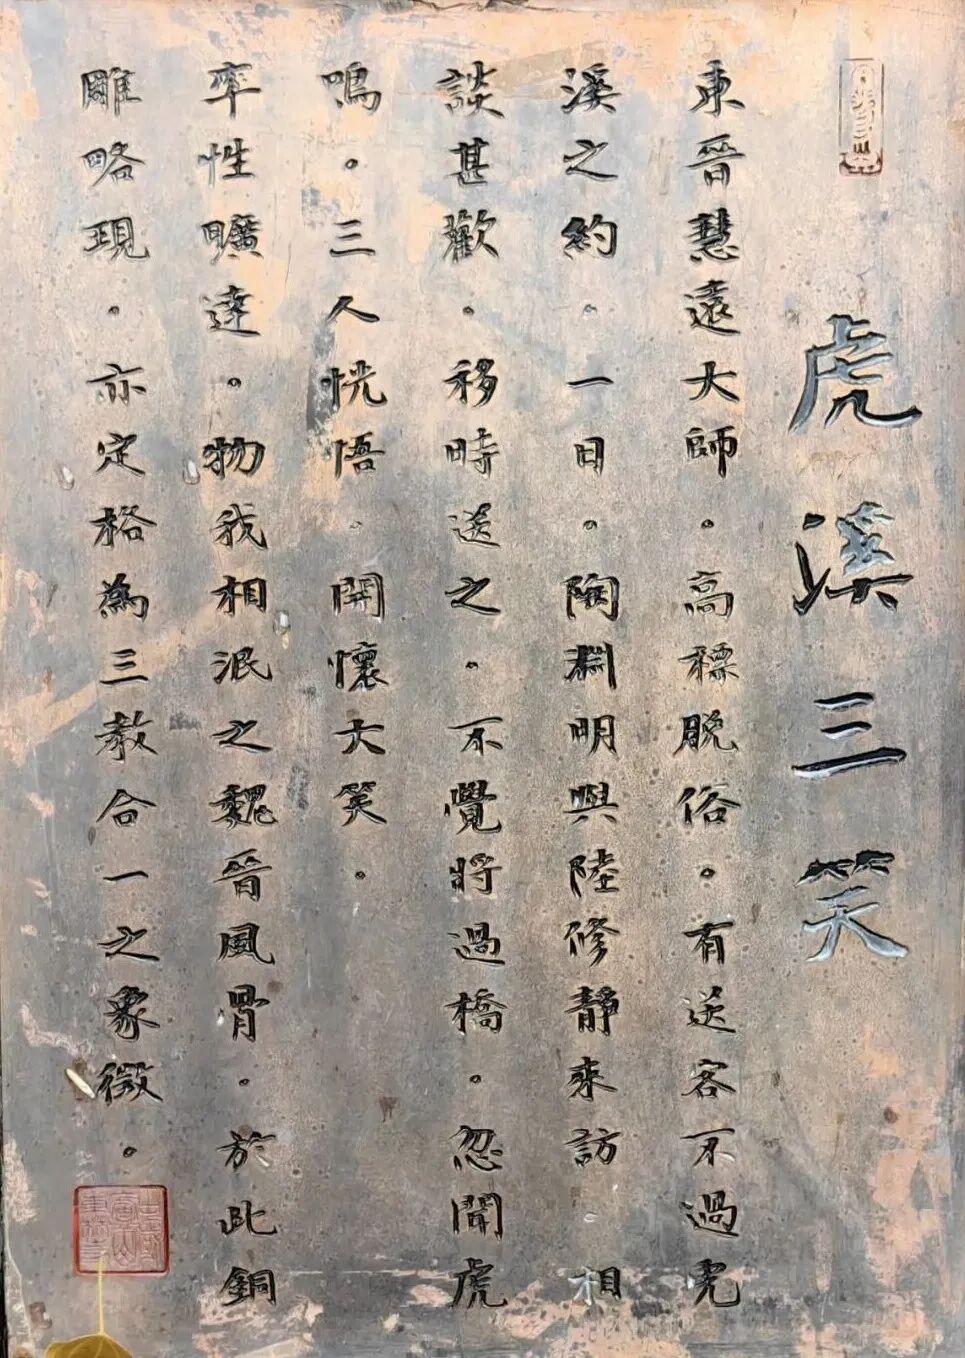 虎溪三笑
東晉慧遠大師。高標脫俗。有送客不過虎
溪之約。一日。陶淵明與陸修靜來訪。相
談甚歡。移時送之。不覺將過橋。忽聞虎
鳴。三人恍悟。開懷大笑。
率性曠達。物我相泯之魏晉風骨。於此銅
雕略現。亦定格為三教合一之象徵。